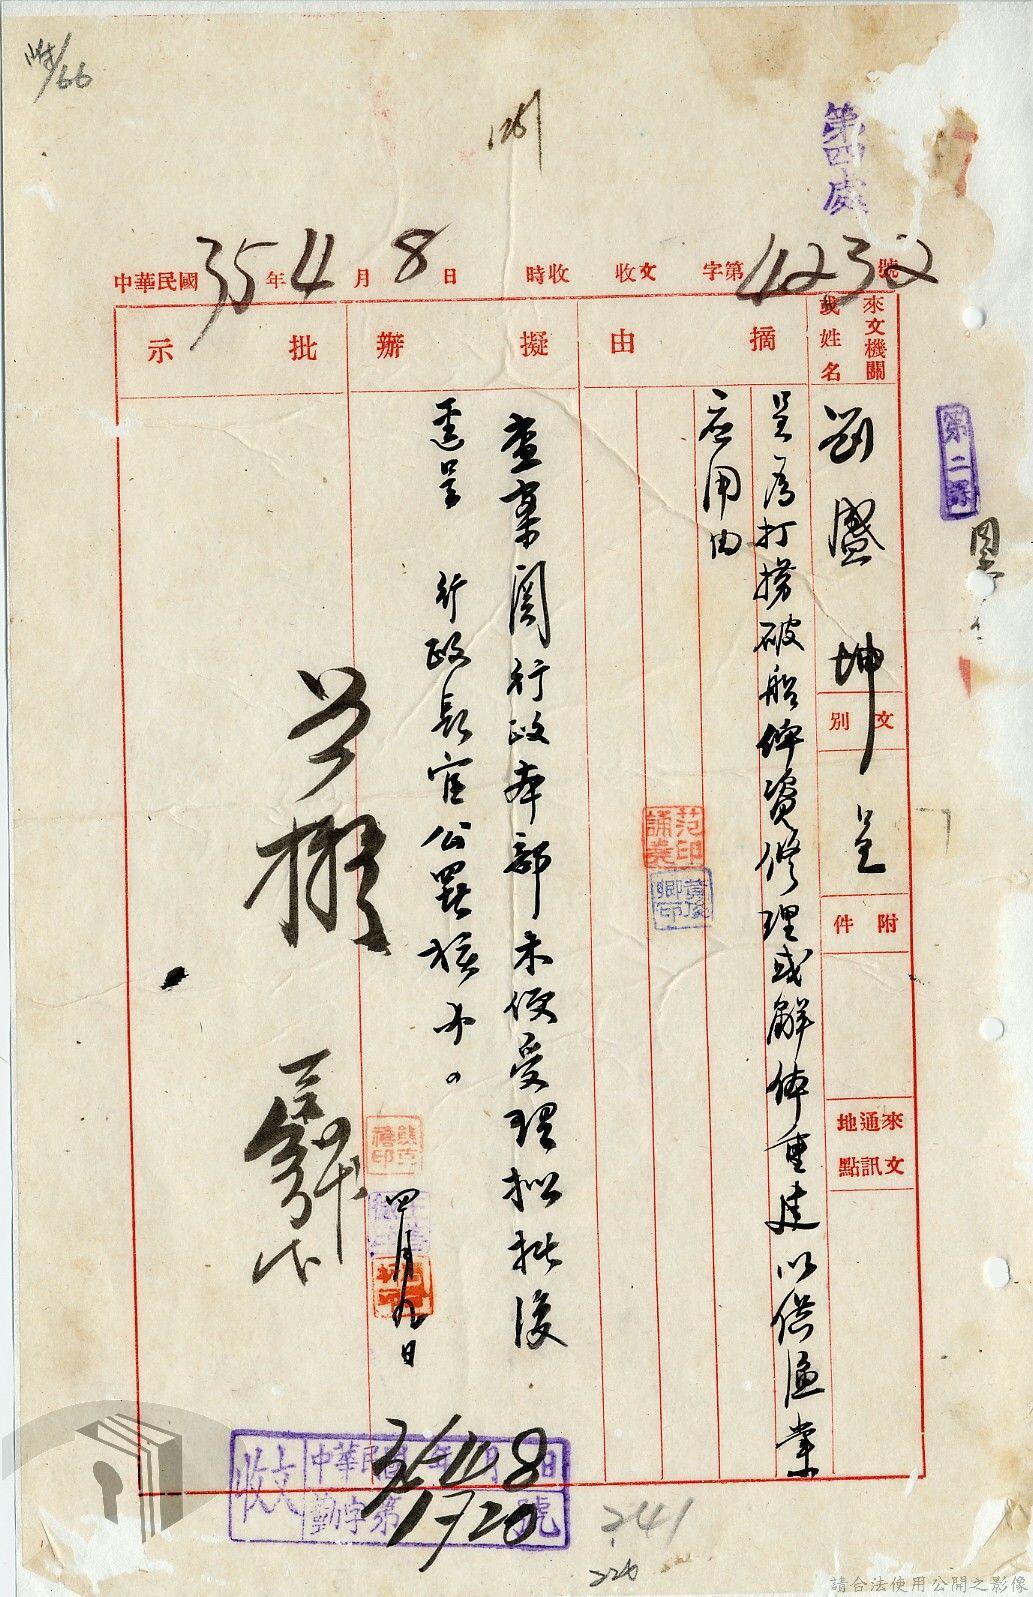 附/66
第四處
中華民國35年4月8日 時收 收文 字第4232號
來文機關或姓名
摘由
擬辦
批示
劉盛坤
文別
呈
附件
來文通訊地點
呈為打撈破船俾資修理或解体重建以供漁業
应用由
查案関行政本部未便受理拟批復
逕呈 行政長官公署核办。
四月九日
第二課
收文
中華民國35年4月8日
勤字第1720號
241
226
請合法使用公開之影像